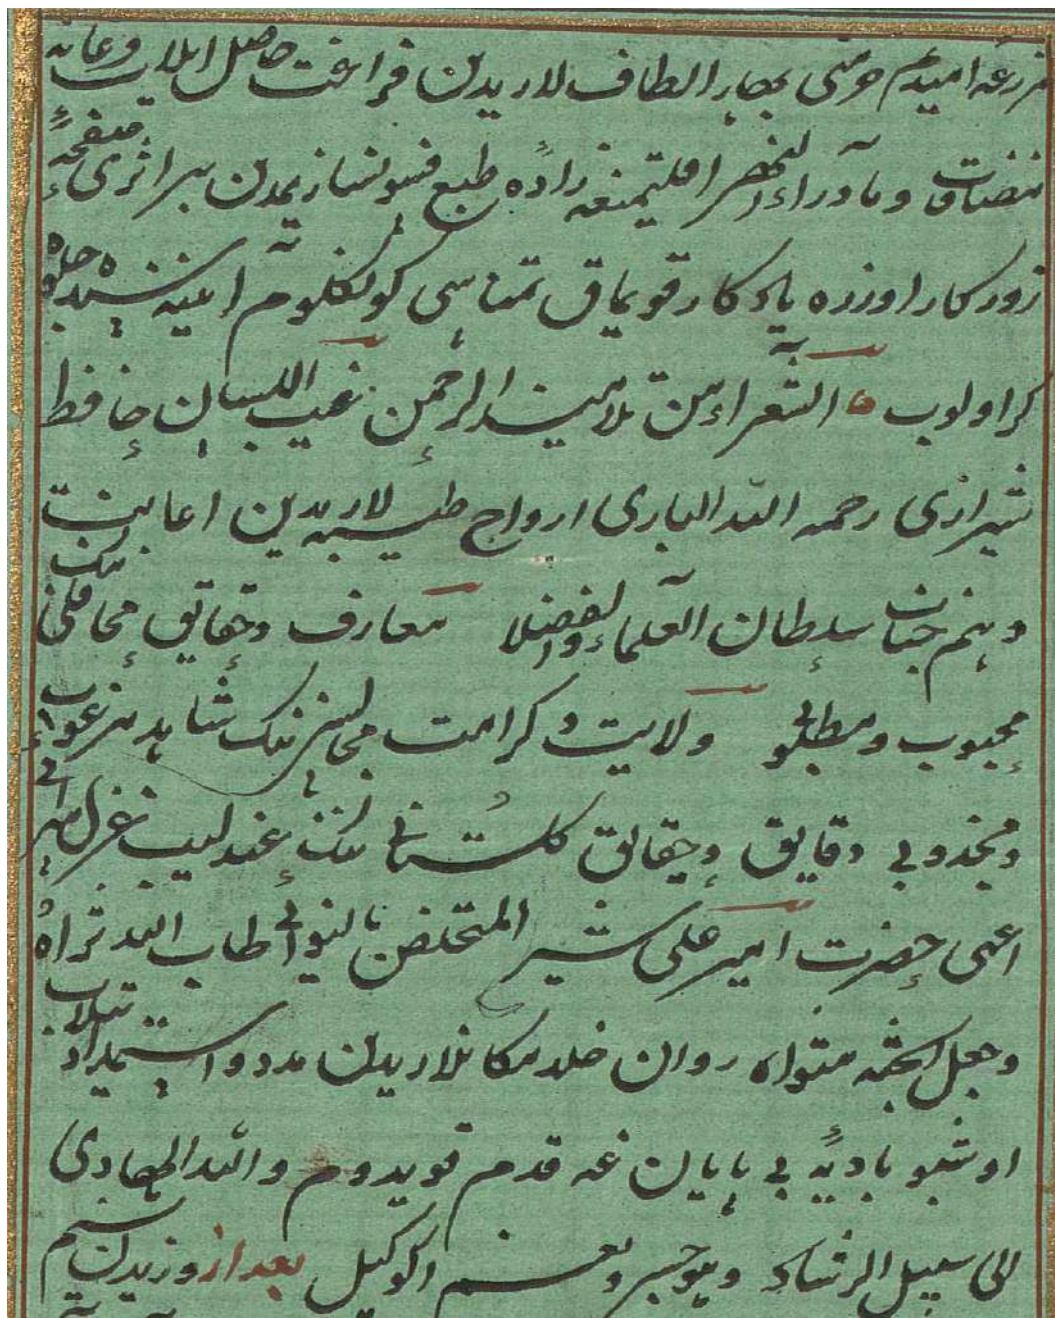 مزرعه امیدیم خوشی بحار الطاف لاریدین فراغت حاصل ایلاب و عامه
و ماوراء النهر اقلیمیغه زاده طبع فسونسازیمدن بیر اثری صفحهٔ
روزکار اوزره یادکار قویماق تمناسی کونکلوم آئینه سیده جلوه
کر اولوب الشعراء من تلامیذ الرحمن غیب اللسان حافظ
شیرازی رحمه الله الباری ارواح طیبه لاریدین اعانت
و هم جناب سلطان العلماء والفضلا معارف و حقایق محافلی نینک
محبوب و مطلوبی ولایت و کرامت مجالسی نینک شاهد مرغوب
و مجذوبی دقایق و حقائق کلستانی نینک عندلیب غزل سرایی
اعنی حضرت امیر علی شیر المتخلص بالنوائی طاب الله ثراه
و جعل الجنة مثواه روان خلد مکانلاریدین مدد و استمداد تیلاب
اوشبو بادیهٔ بی پایان غه قدم قویدوم والله الهادی
الی سبیل الرشاد و هو حسبی و نعم الوکیل بعد از